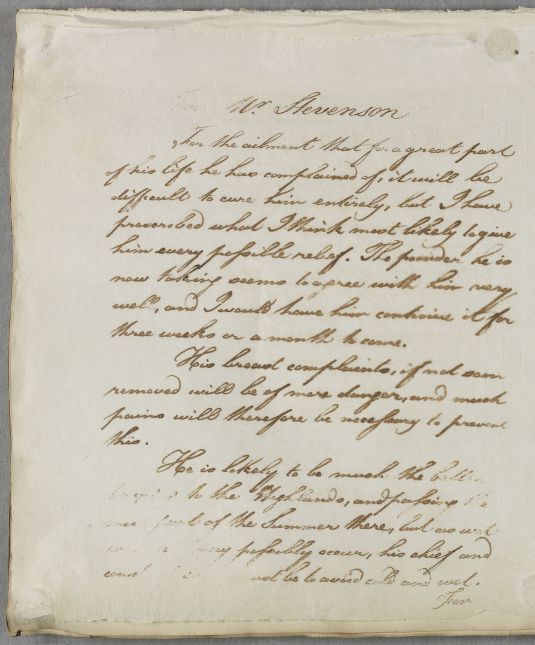 For Mr. Stevenson
For the ailment that for a great part
of his life he has complained of, it will be
difficult to cure him entirely, but I have
prescribed what I think most likely to give
him every possible relief. The powder he is
now taking seems to agree with him very
well, and I would have him continue it for
three weeks or a month to come.
His breast complaints, if not soon
removed will be of more danger, and much
pains will therefore be necessary to prevent
this.
He is likely to be much the
to the Highlands, and passing the
part of the Summer there, but as wet
may possibly occur, his chief and
be to avoid cold and wet.